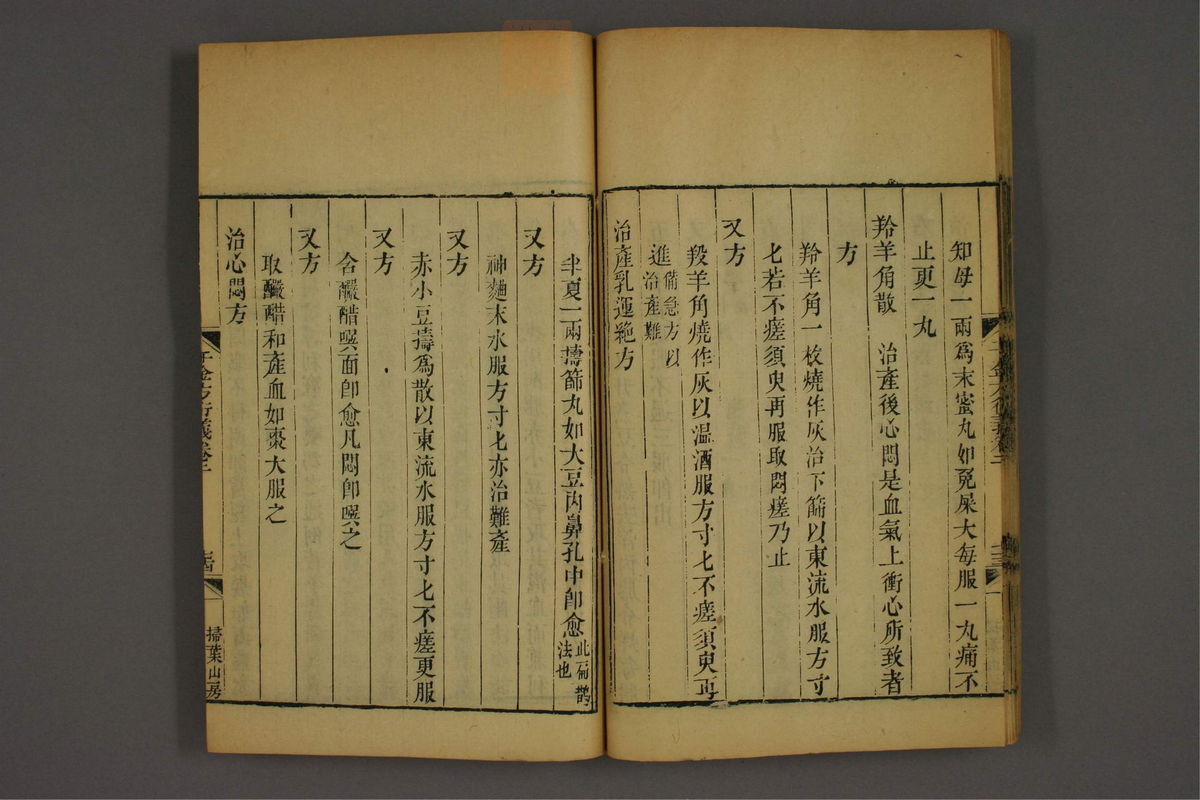 知母一兩爲末蜜丸如兔屎大每服一丸痛不
止更一丸
羚羊角散 治產後心悶是血氣上衝心所致者
方
羚羊角一枚燒作灰治下篩以東流水服方寸
匕若不瘥須臾再服取悶瘥乃止
又方
羖羊角燒作灰以温酒服方寸匕不瘥須臾再
進備急方以
治產難
治產乳運絕方
半夏一兩擣篩丸如大豆內鼻孔中卽愈此扁鵲
法也
又方
神麯末水服方寸匕亦治難產
又方
赤小豆擣爲散以東流水服方寸匕不瘥更服
又方
含釅醋噀面卽愈凡悶卽噀之
又方
取釅醋和產血如棗大服之
治心悶方
千金方衍義卷三
掃葉山房